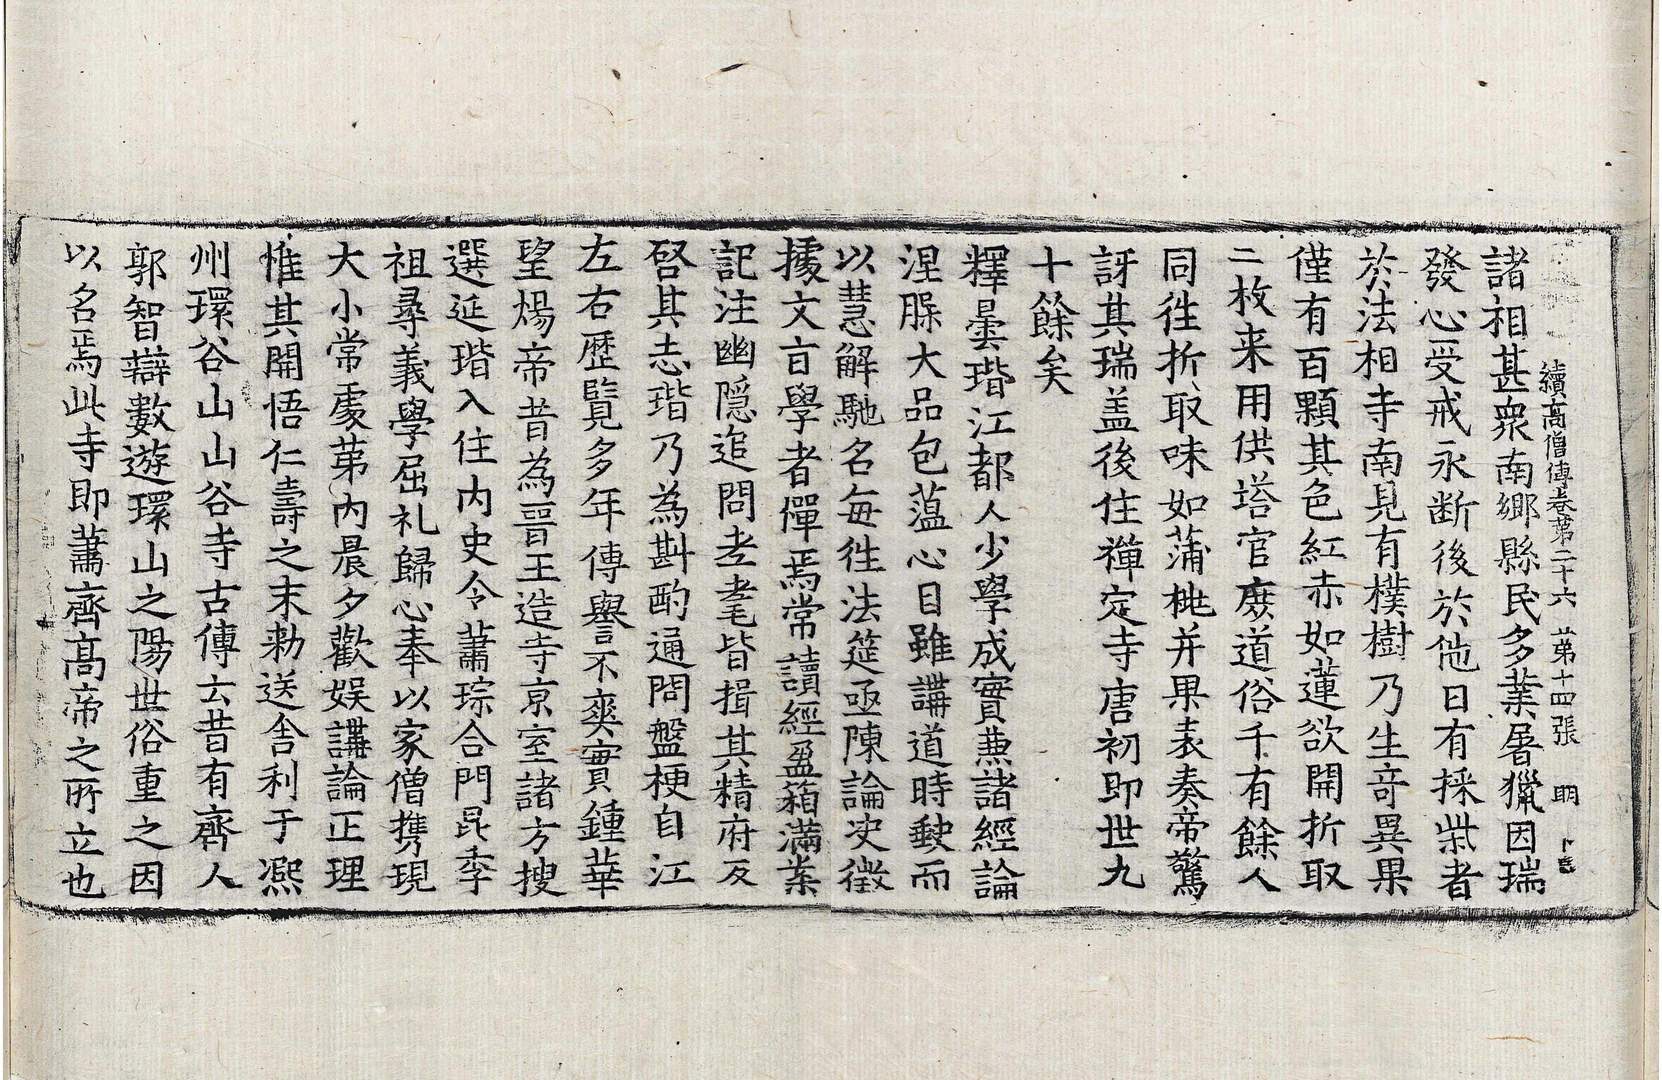 續高僧傳卷第二十六 第十四張 明
諸相甚衆南鄉縣民多業屠獵因瑞
發心受戒永断後於他日有採柴者
於法相寺南見有樸樹乃生竒異果
僅有百顆其色紅赤如蓮欲開折取
二枚来用供塔官庶道俗千有餘人
同徃折取味如蒲桃并果表奏帝驚
訝其瑞盖後住禪定寺唐初即世九
十餘矣
釋曇瑎江都人少學成實兼諸經論
涅槃大品包蕴心目雖講道時缺而
以慧解馳名每徃法筵亟陳論决徴
據文旨學者憚焉常讀經盈箱滿葉
記注幽隱追問老耄皆揖其精府反
啓其志瑎乃為斟酌通問盤梗自江
左右歷覽多年傳譽不爽實鍾華
望煬帝昔為晉王造寺京室諸方搜
選延瑎入住内史令蕭琮合門昆季
祖尋義學屈礼歸心奉以家僧携現
大小常處第内晨夕歡娱講論正理
惟其開悟仁壽之末勑送舎利于熈
州環谷山山谷寺古傳云昔有齊人
郭智辯數遊環山之陽世俗重之因
以名焉此寺即蕭齊高帝之所立也